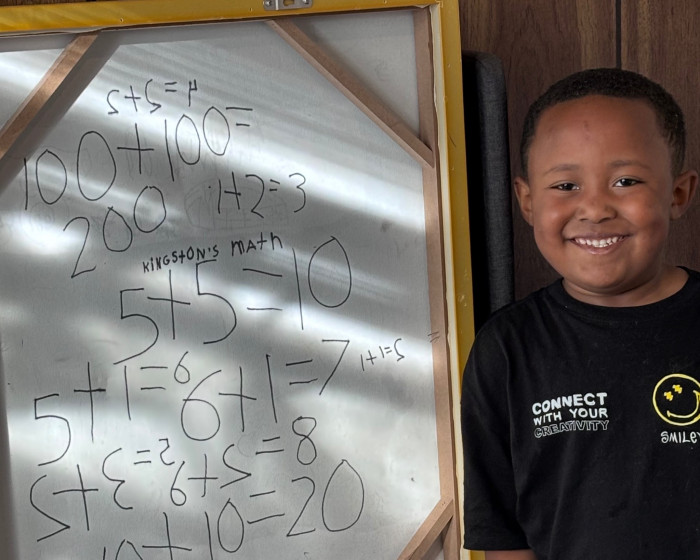 2+2=4
100+100=
200
1+2=3
KiNGStON'S mAtH
5+5=10
5+1=6
6+1=7
1+1=2
2+3=5
6+2=8
10+10=20
CONNECT
WITH YOUR
CREATIVITY
SMILEY